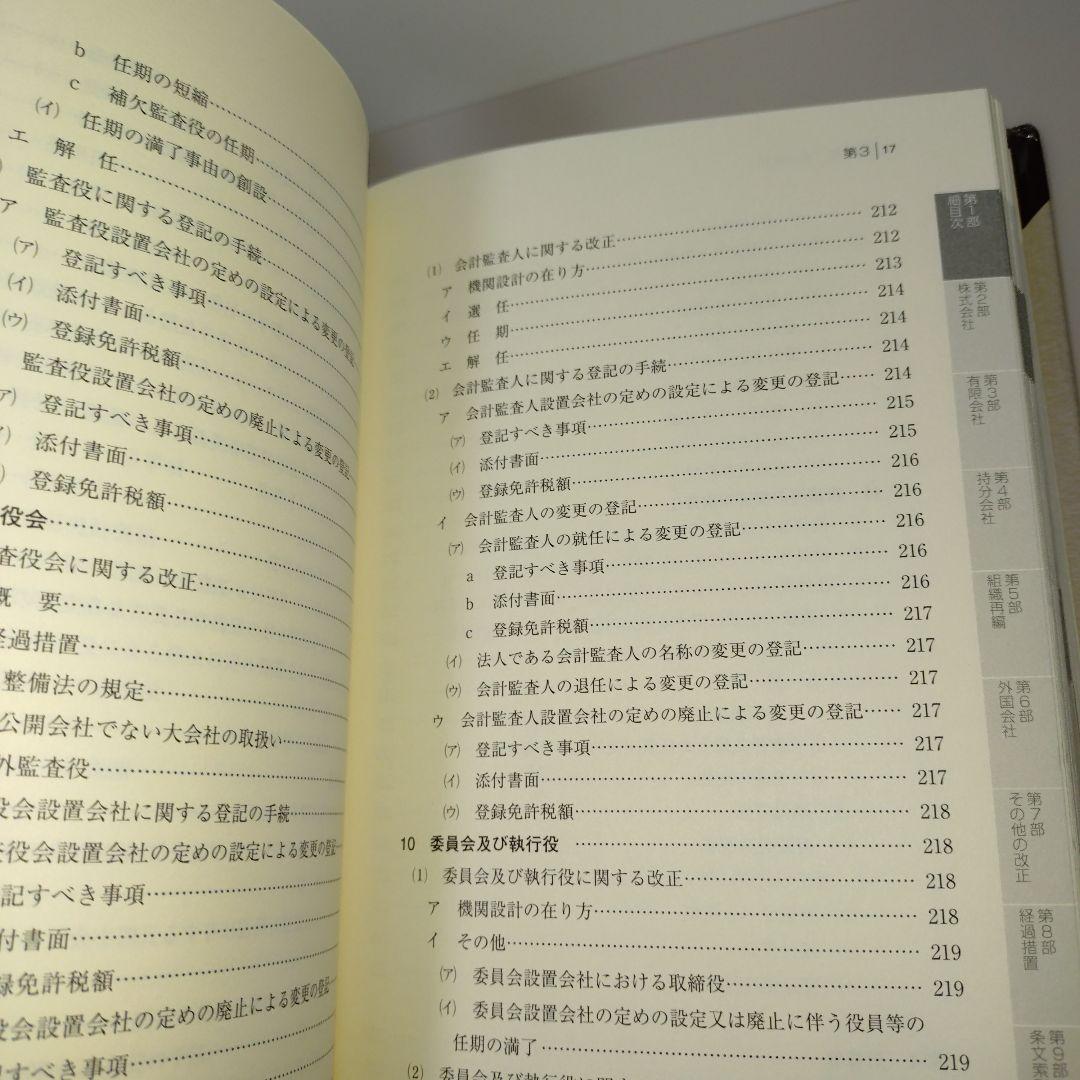 b 任期の短縮
c 補欠監査役の任期
(イ) 任期の満了事由の創設
エ 解 任
監査役に関する登記の手続
ア 監査役設置会社の定めの設定による変更の登記
(ア) 登記すべき事項
(イ) 添付書面
(ウ) 登録免許税額
監査役設置会社の定めの廃止による変更の登記
登記すべき事項
添付書面
登録免許税額
役会
査役会に関する改正
概 要
経過措置
整備法の規定
公開会社でない大会社の取扱い
外監査役
役会設置会社に関する登記の手続
査役会設置会社の定めの設定による変更の登記
記すべき事項
付書面
録免許税額
役会設置会社の定めの廃止による変更の登記
記すべき事項
第3 17
(1) 会計監査人に関する改正 212
ア 機関設計の在り方 212
イ 選 任 213
ウ 任 期 214
エ 解 任 214
(2) 会計監査人に関する登記の手続 214
ア 会計監査人設置会社の定めの設定による変更の登記 214
(ア) 登記すべき事項 215
(イ) 添付書面 215
(ウ) 登録免許税額 216
イ 会計監査人の変更の登記 216
(ア) 会計監査人の就任による変更の登記 216
a 登記すべき事項 216
b 添付書面 216
c 登録免許税額 217
(イ) 法人である会計監査人の名称の変更の登記 217
(ウ) 会計監査人の退任による変更の登記 217
ウ 会計監査人設置会社の定めの廃止による変更の登記 217
(ア) 登記すべき事項 217
(イ) 添付書面 217
(ウ) 登録免許税額 218
10 委員会及び執行役 218
(1) 委員会及び執行役に関する改正 218
ア 機関設計の在り方 218
イ その他 219
(ア) 委員会設置会社における取締役 219
(イ) 委員会設置会社の定めの設定又は廃止に伴う役員等の
任期の満了 219
(2) 委員会及び執行役に関
第1部
細目次
第2部
株式会社
第3部
有限会社
第4部
持分会社
第5部
組織再編
第6部
外国会社
第7部
その他の改正
第8部
経過措置
第9部
条文索